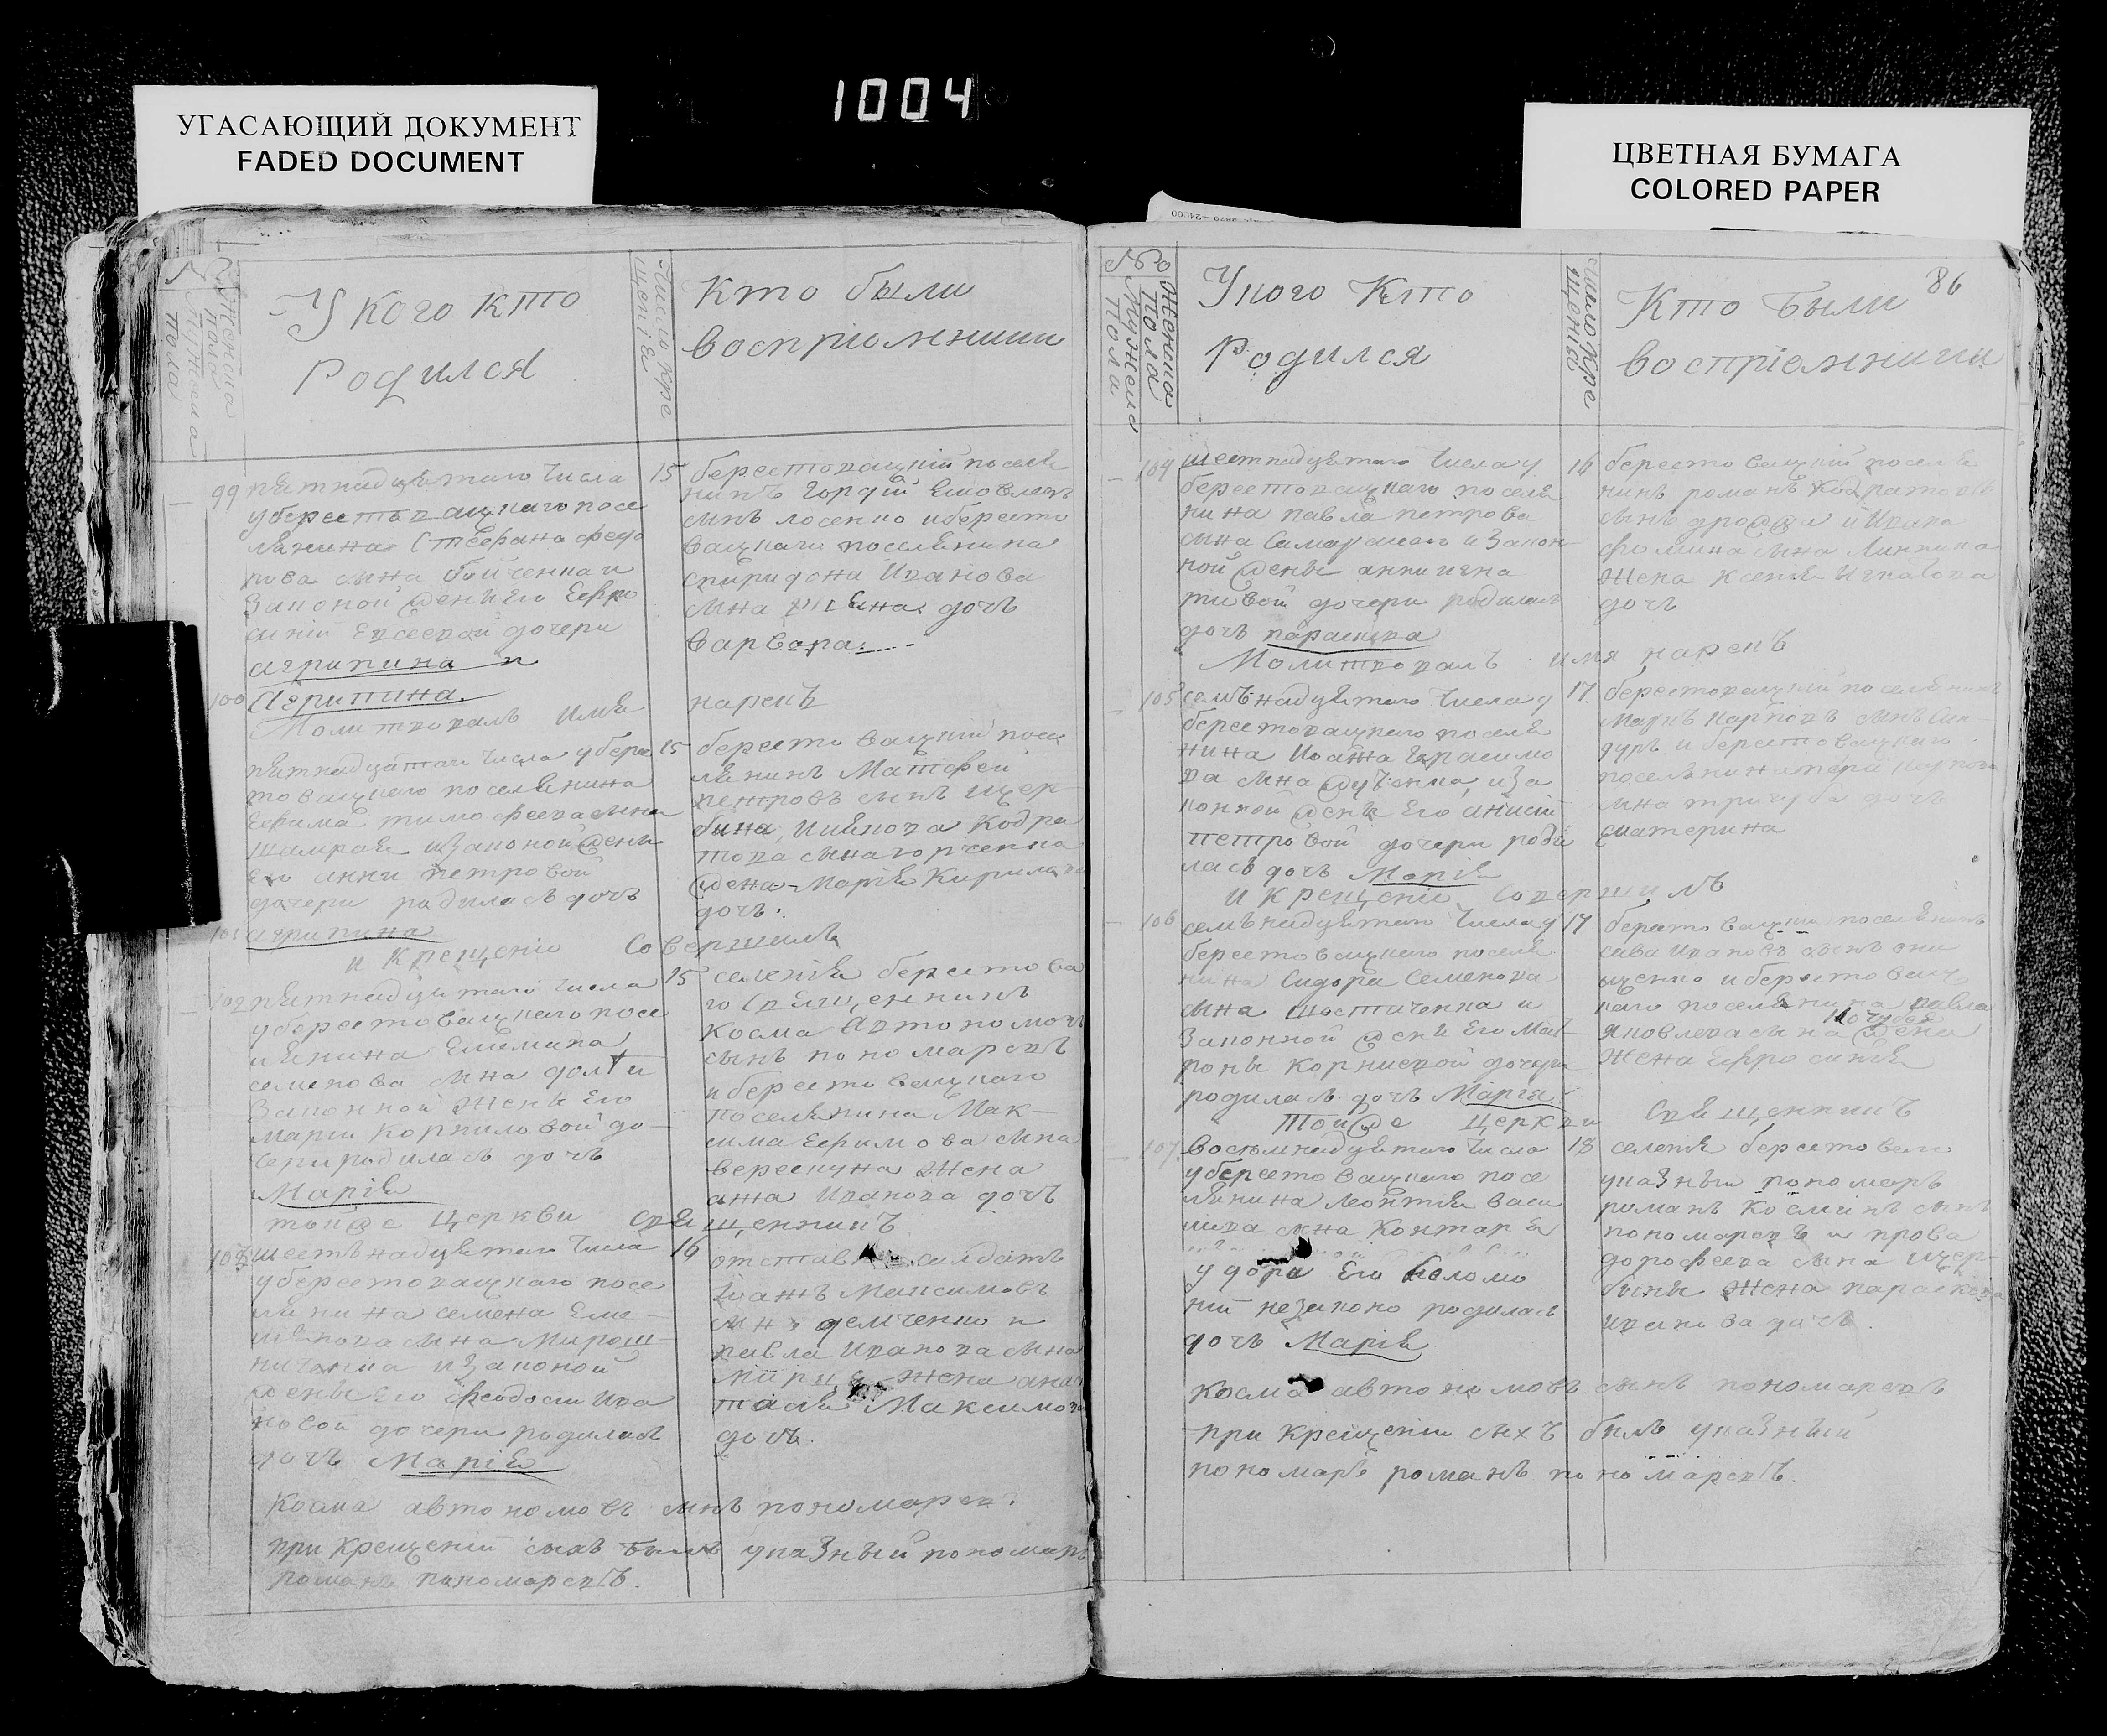 1004
УГАСАЮЩИЙ ДОКУМЕНТ
FADED DOCUMENT
ЦВЕТНАЯ БУМАГА
COLORED PAPER
У кого кто
Родился
Число кре
щенія
кто были
воспріемники
99 пятнадцятого числа
уберестовацкаго посе
лянина Стефана федо
рова сына
законой жени его Евфро
синіи Евсеевой дочери
агрипина
15 берестовацкій поселя
нинъ Гордій
сынъ лосенко ибересто
вацкаго поселянина
спиридона Иванова
сына дочъ
варвара
100 Агрипина
Молитвовалъ имя нареиъ
пятнадцатаго числа убере
товацкаго поселянина
Ефима тимофеева сына
шамрая изаконой жены
его анни петровой
дочери родиласъ дочъ
101 агрипина
15 берестовацкій посе
лянинъ Матфей
петровъ сынъ щер
бина, Кодра
това сына горченка
жена Марія
дочъ
и Крещеніе Совершилъ
102 пятнадцятого числа
уберестовацкого посе
лянина Емеляна
семенова сына
законной жены Его
марии Корниловой до
чери родиласъ дочъ
Марія
15 селенія берестова
го Священникъ
Косма Автономовъ
сынъ пономаревъ
иберестовацкаго
поселянина Мак-
сима Ефимова сына
верескуна жена
анна Иванова дочъ
тойже Церкви Священникъ
103 шестьнадцятого числа
уберестовацкаго посе
лянина семена Еме-
лянова сына Мирош-
ниченка изаконой
жены его феодосии Ива
новой дочери родиласъ
дочъ Марія
16 отставн салдатъ
Иоанъ Максимовъ
сынъ демченко и
павла Иванова сына
жена анас
тасія Максимова
дочъ.
Косма автономовъ сынъ пономаревъ
при Крещеніи сихъ былъ указный пономаръ
романъ пономаревъ.
86
У кого Кто
Родился
Число Кре
щенія
Кто были
воспріемники
104 шестнадцятого числа у
берестовацкаго поселя
нина павла петрова
сына Самарскаго изакон
ной жены анни игна
тиевой дочери родилась
дочъ параскева
16 берестовацкій поселя
нинъ романъ Кодратовъ
сынъ дрозда и Ивана
фомина сына
жена ксенія Игнатова
дочъ
Молитвовалъ имя нарекъ
105 семънадцятого числа у
берестовацкаго поселя
нина Иоанна Герасимо
ва сына изa
конной жены его анисии
петровой дочери роди
ласъ дочъ Марія
17 берестовацкий поселянинъ
Маркъ Карповъ сынъ
иберестовацкаго
сына дочъ
екатерина
и Крещеніе Совершилъ
106 семънадцятого числа у
берестовацкого поселя
нина Сидора Семенова
сына Шостаченка и
Законной жены его Мат
роны Корниевой дочери
родиласъ дочъ Марія
17 берестовацкий поселянинъ
сава Ивановъ сынъ они
щенко иберестовац
каго поселянина павла
яковлева сына
жена Ефросинія
тойже Церкви Священникъ
107 восемнадцятого числа
уберестовацкого посе
лянина леонтія васи
лиева сына Контаря
у двора Его Соломо
нии незаконо родилась
дочъ Марія
18 селенія берестового
указный пономаръ
романъ Космінъ сынъ
пономаревъ и прова
дорофеева сына щер-
бины жена параскева
иванова дочъ.
Косма автономовъ сынъ пономаревъ
при Крещеніи сихъ былъ указный
пономаръ романъ пономаревъ.